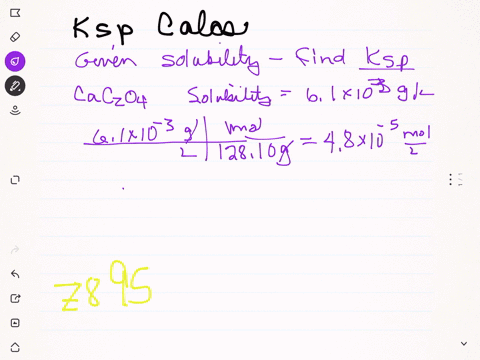 Ksp Calcs
Given solubility - find Ksp
CaC2O4 Solubility = 6.1x10^-3 g/L
6.1x10^-3 g | mol
L | 128.10g = 4.8x10^-5 mol/L
z895